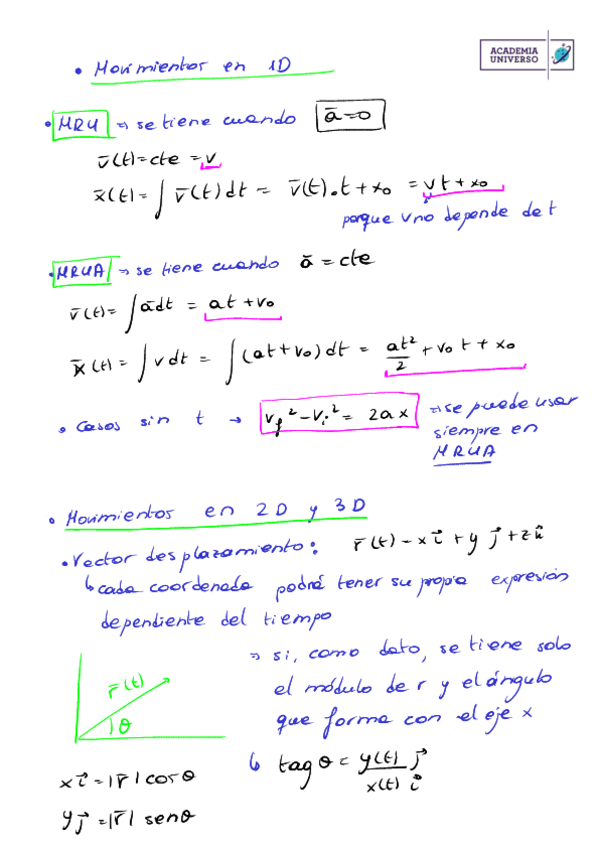 ACADEMIA
UNIVERSO
• Movimientos en 1D
• MRU ⇒ se tiene cuando ā=0
v̄(t)=cte = v
x̄(t) = ∫ v̄(t) dt = v̄(t).t + x₀ = vt + x₀
porque v no depende de t
• MRUA ⇒ se tiene cuando ā = cte
v̄(t)= ∫ādt = at + v₀
x̄(t) = ∫ v dt = ∫(at+v₀) dt = at²/2 + v₀ t + x₀
• Casos sin t → v_f² - v_i² = 2ax ⇒ se puede usar
siempre en
MRUA
• Movimientos en 2D y 3D
• Vector desplazamiento: r̄(t) = x i⃗ + y j⃗ + z k⃗
↳ cada coordenada podrá tener su propia expresión
dependiente del tiempo
r̄(t)
θ
⇒ si, como dato, se tiene solo
el módulo de r y el ángulo
que forma con el eje x
x i⃗ = |r̄| cosθ
y j⃗ = |r̄| senθ
↳ tag θ = y(t) j⃗ / x(t) i⃗